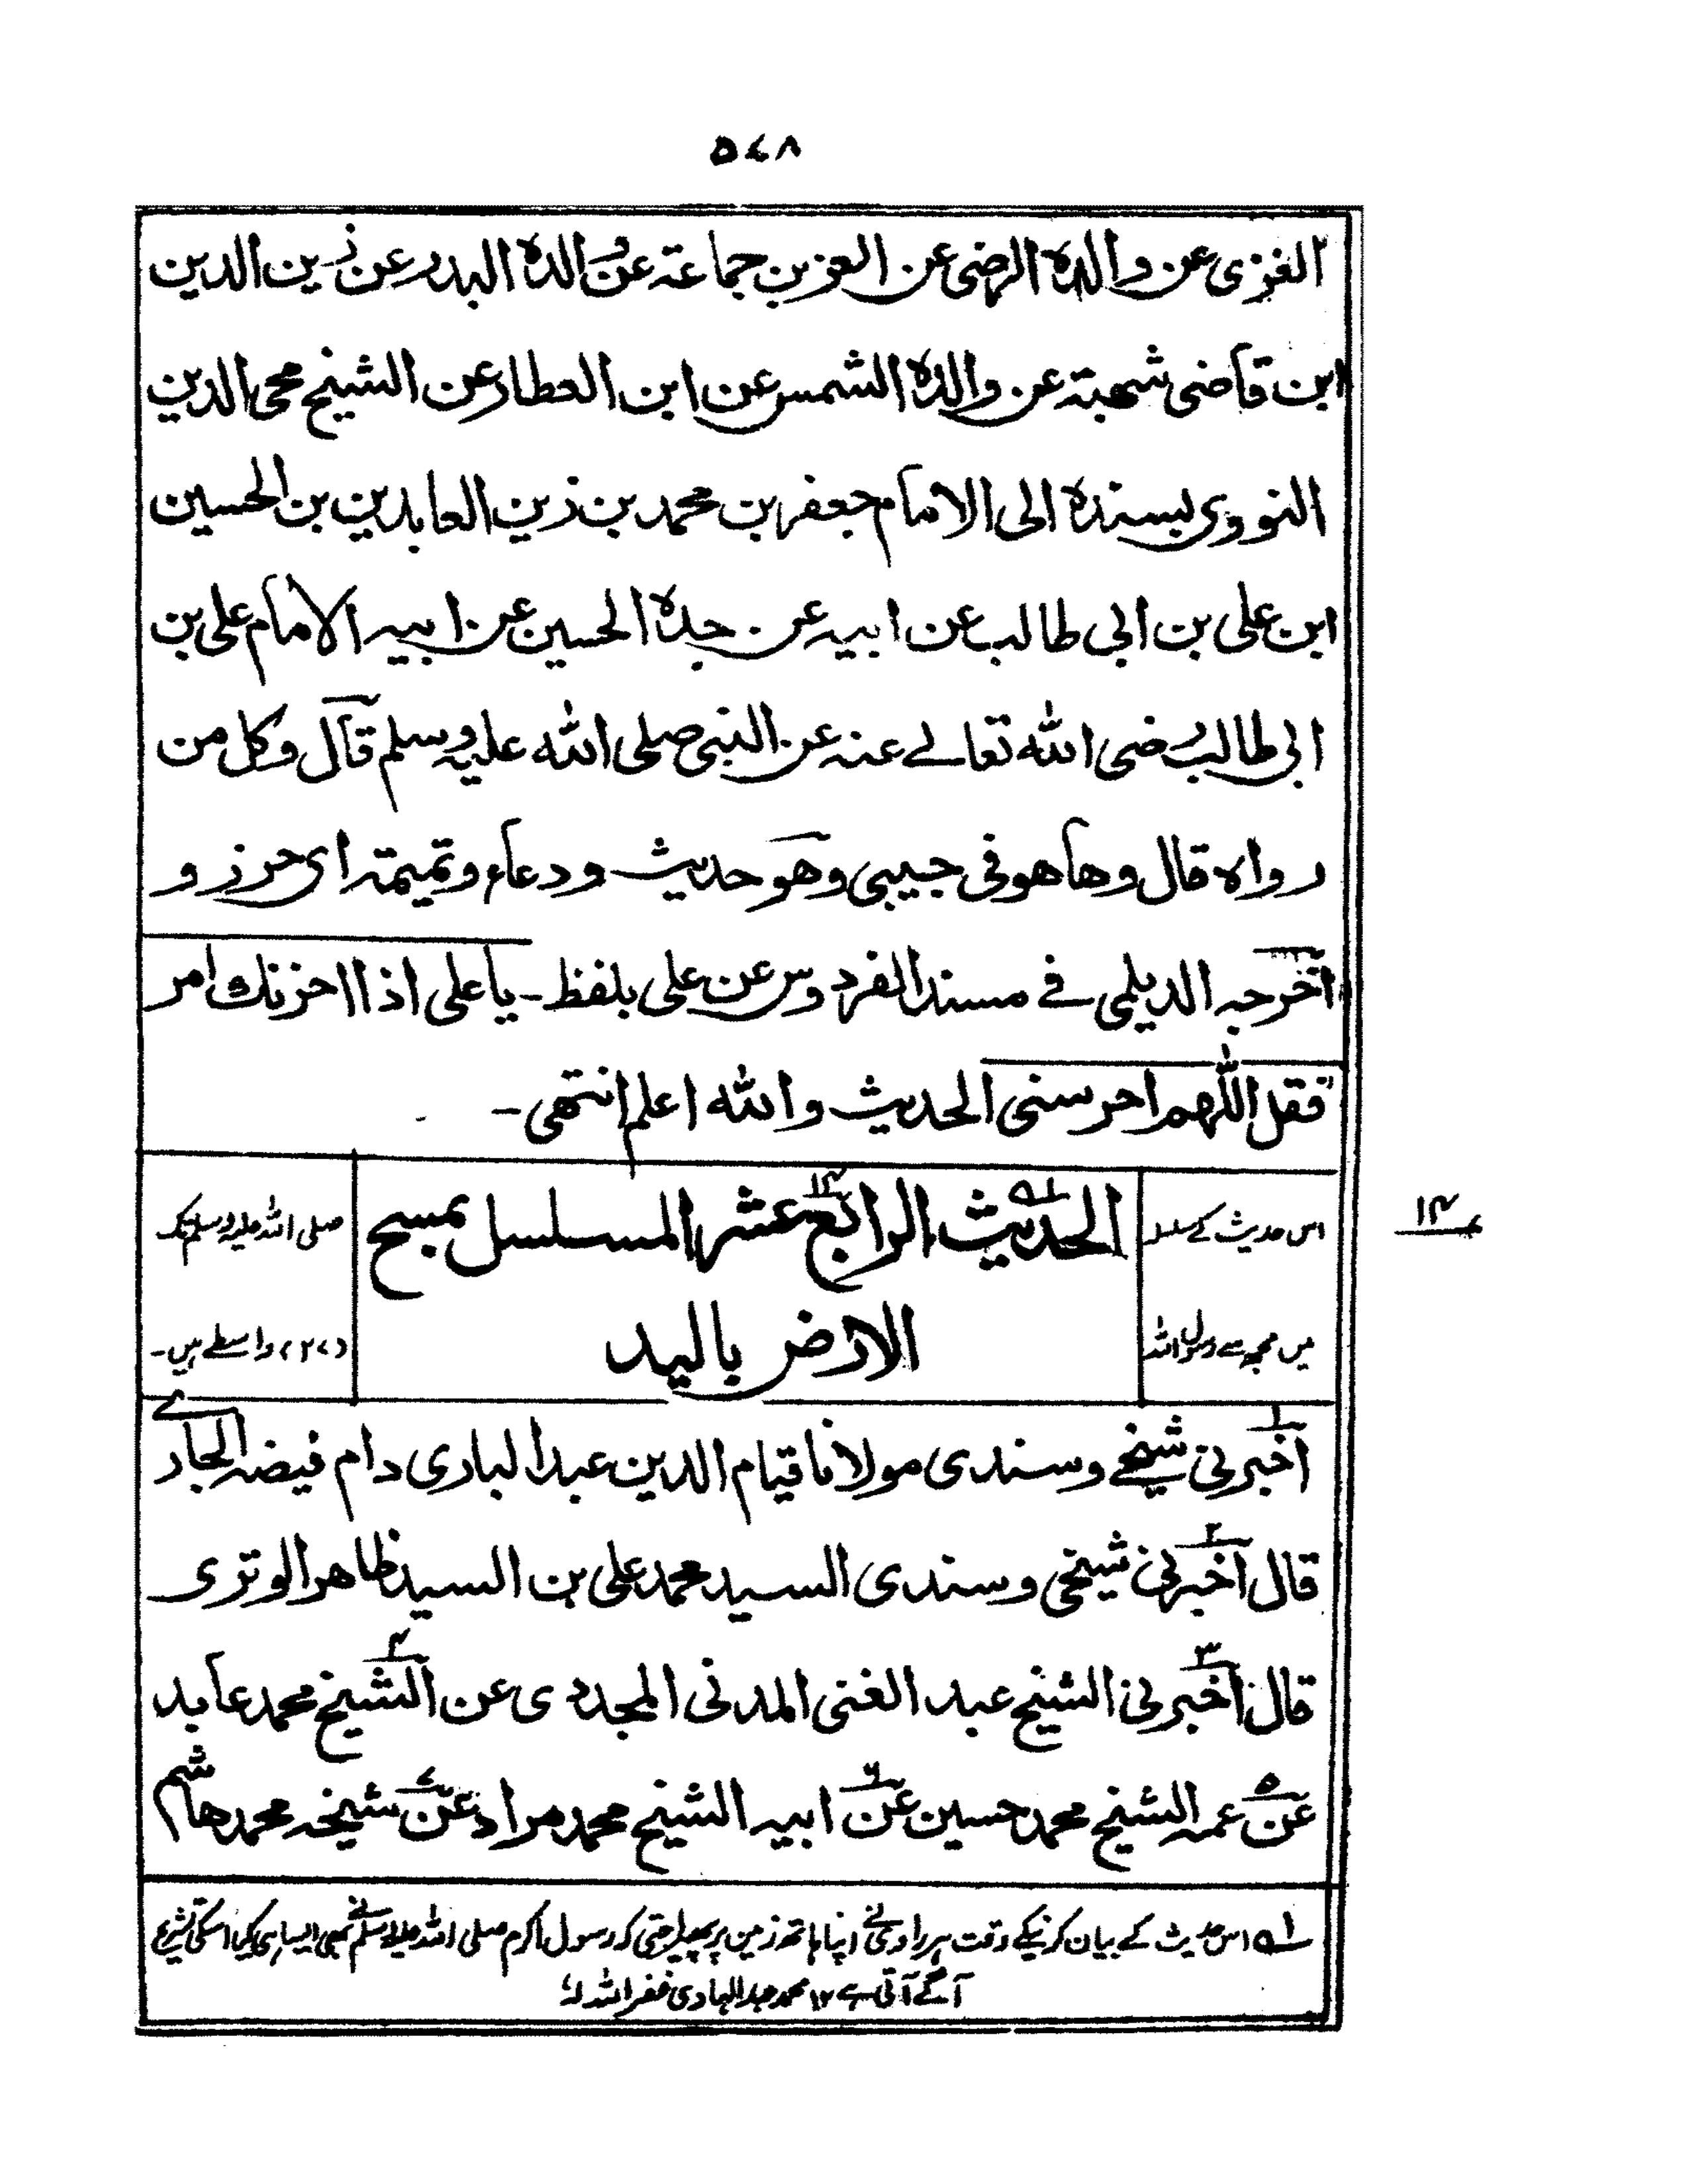 ۵۷۸
الغزى عن والده الرضى عن العز بن جماعة عن والده البدر عن زين الدين
ابن قاضى شهبة عن والده الشمس عن ابن العطار عن الشيخ محى الدين
النووى بسنده الى الامام جعفر بن محمد بن زين العابدين بن الحسين
ابن على بن ابى طالب عن ابيه عن جده الحسين عن ابيه الامام على بن
ابى طالب رضى الله تعالے عنه عن النبى صلى الله عليه وسلم قال وكل من
رواه قال وها هو فى جيبى وهو حديث ودعاء وتميمة اى حرز و
اخرجه الديلمى فے مسند الفردوس عن على بلفظ ـ يا على اذا احزنك امر
فقل اللهم احرسنى الحديث والله اعلم انتهى ـ
الحديث الرابع عشر المسلسل بمسح
الارض باليد
اس حدیث کے سلسلہ
میں مجھ سے رسول اللہ
صلی اللہ علیہ وسلم تک
(۲۷) واسطے ہیں۔
۱۴
اخبرنى شيخے وسندى مولانا قيام الدين عبد البارى دام فيضه الجارے
قال اخبرنى شيخى وسندى السيد محمد على بن السيد ظاهر الوترى
قال اخبرنى الشيخ عبد الغنى المدنى المجددى عن الشيخ محمد عابد
عن عمه الشيخ محمد حسين عن ابيه الشيخ محمد مراد عن شيخه محمد هاشم
۱ اس حدیث کے بیان کرنیکے وقت ہر راوی نے اپنا ہاتھ زمین پر پھیرا حتی کہ رسول اکرم صلی اللہ علیہ وسلم نے بھی ایسا ہی کیا اسکی تشریح
آگے آتی ہے ۱۲ محمد عبد الہادی غفر اللہ لہ